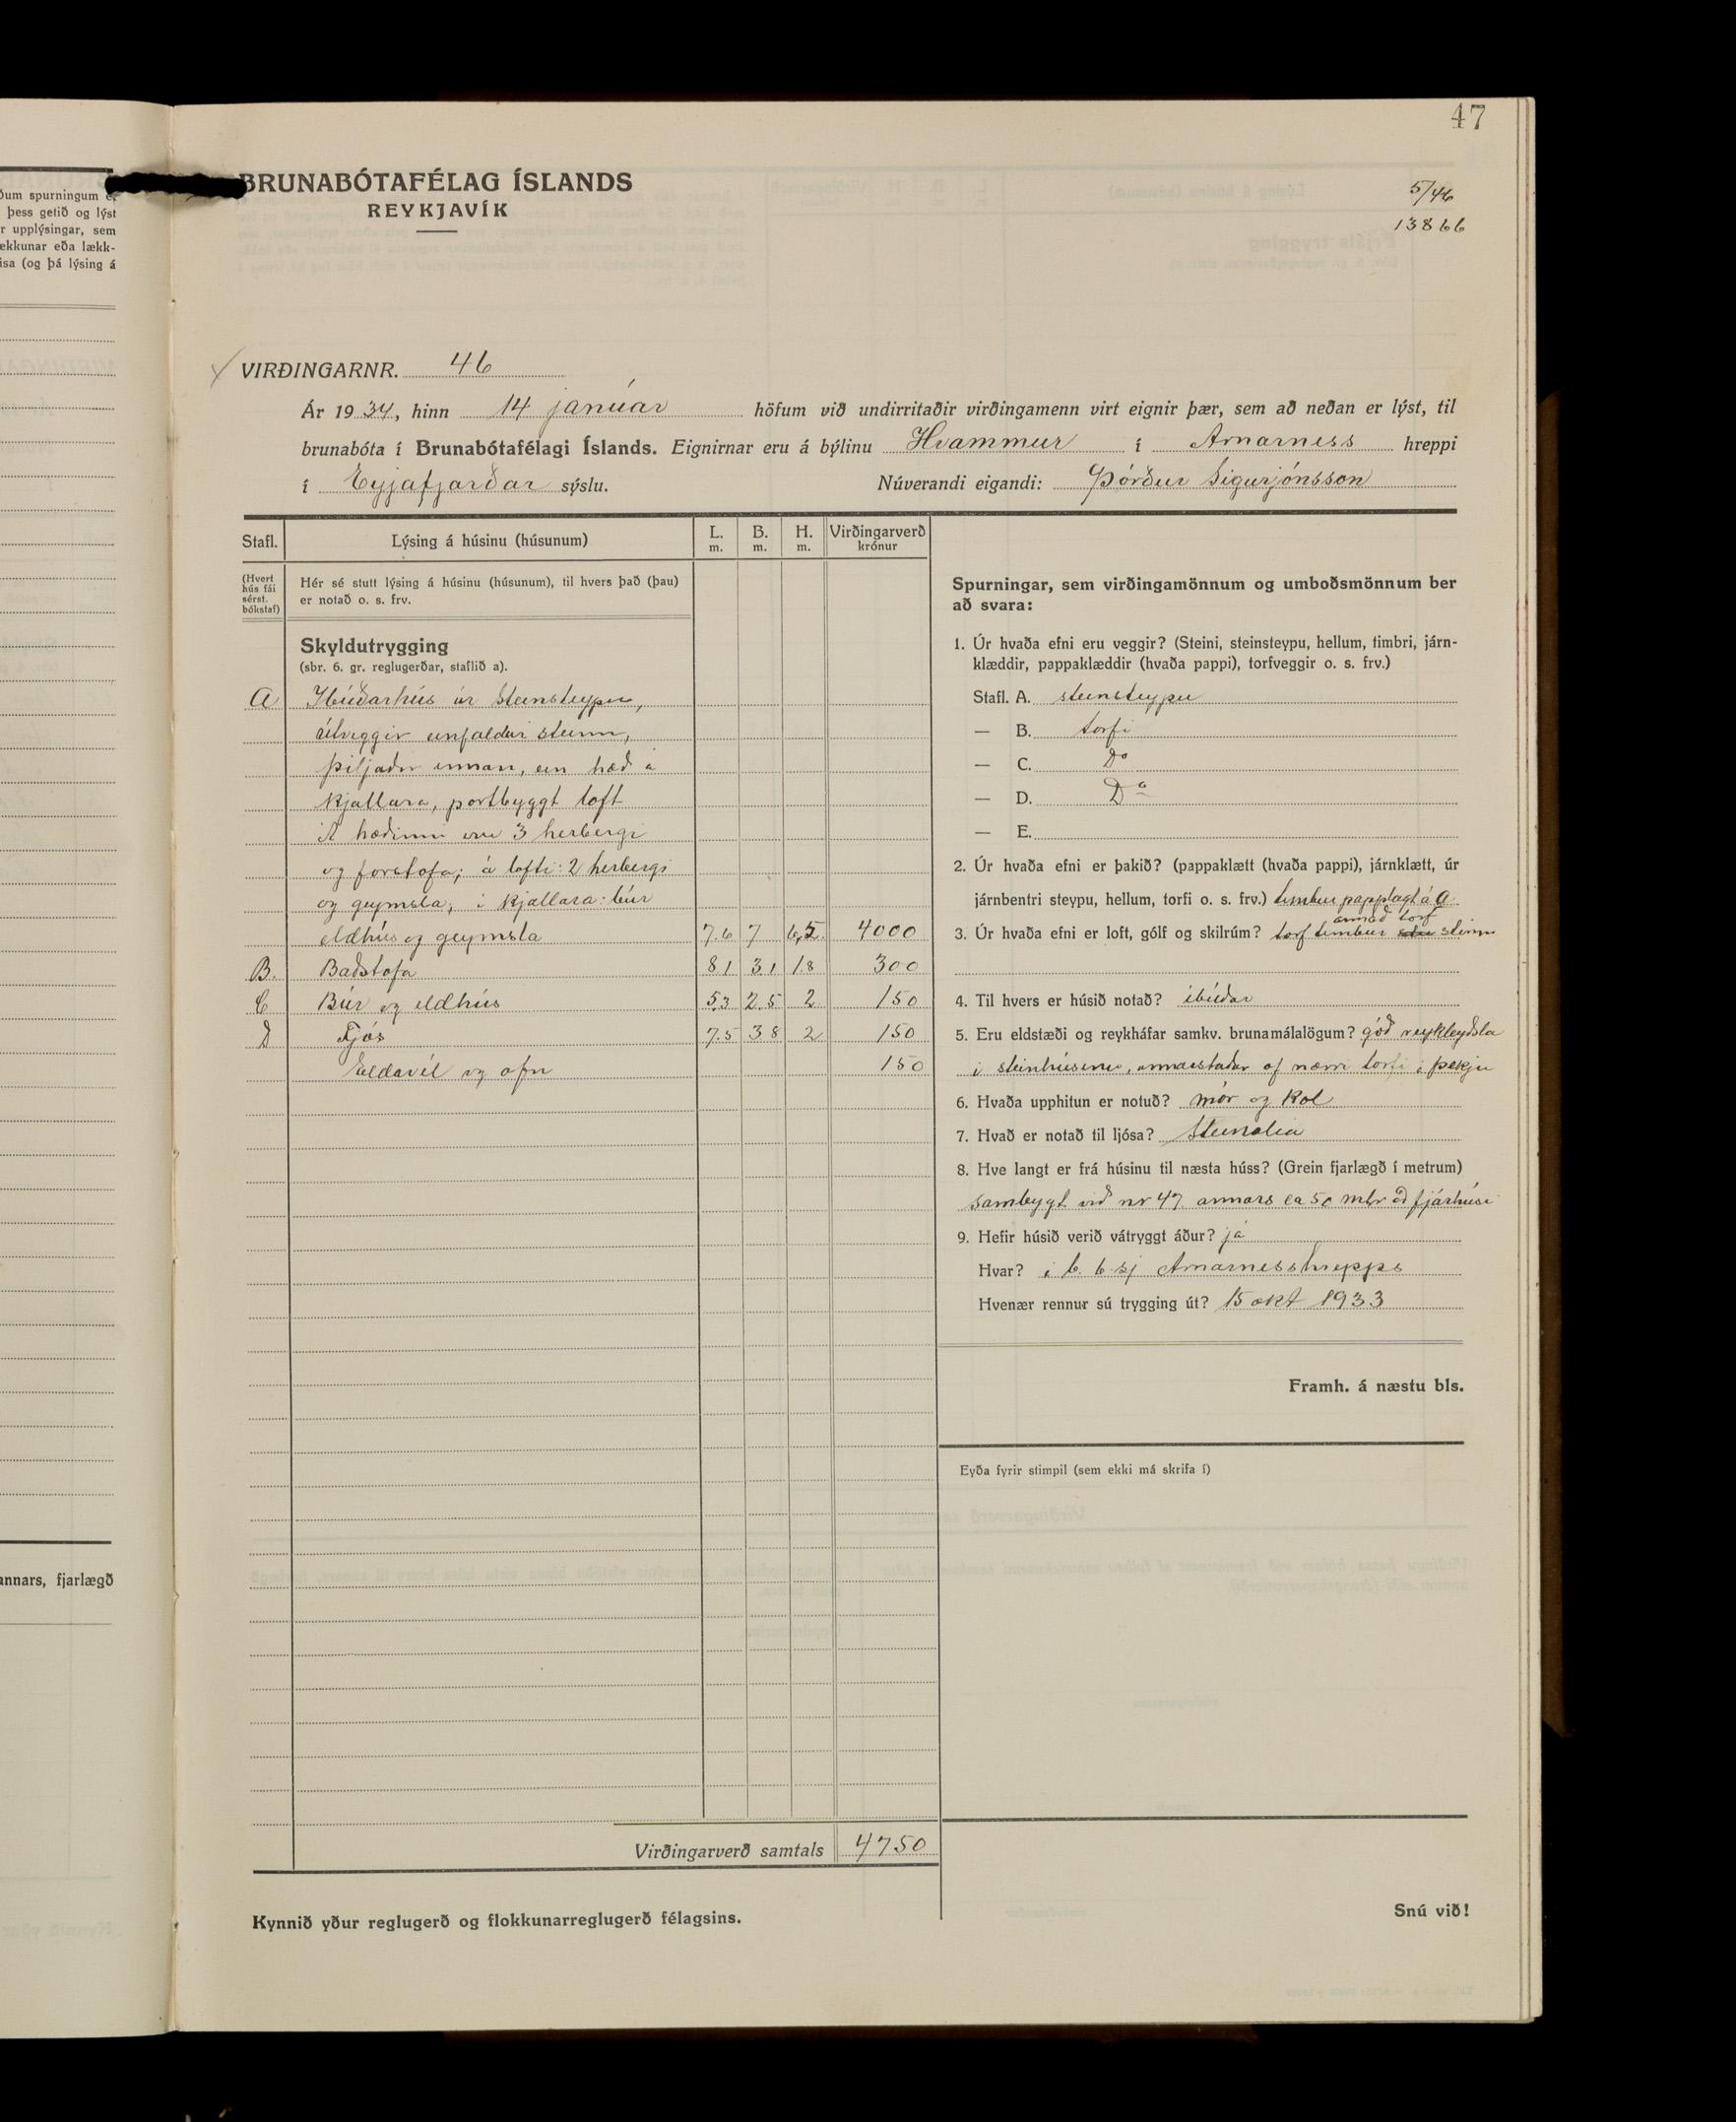 47
ðum spurningum er
þess getið og lýst
r upplýsingar, sem
ækkunar eða lækk-
isa (og þá lýsing á
annars, fjarlægð
BRUNABÓTAFÉLAG ÍSLANDS
REYKJAVÍK
5/46
13866
VIRÐINGARNR. 46
Ár 1934, hinn 14 januar höfum við undirritaðir virðingamenn virt eignir þær, sem að neðan er lýst, til
brunabóta í Brunabótafélagi Íslands. Eignirnar eru á býlinu Hvammur í Arnarness hreppi
í Eyjafjarðar sýslu. Núverandi eigandi: Þórður Sigurjónsson
Stafl. Lýsing á húsinu (húsunum) L. m. B. m. H. m. Virðingarverð krónur
(Hvert hús fái sérst. bókstaf)
Hér sé stutt lýsing á húsinu (húsunum), til hvers það (þau)
er notað o. s. frv.
Skyldutrygging
(sbr. 6. gr. reglugerðar, staflið a).
A Íbúðarhús úr steinsteypu,
útveggir einfaldur steinn,
þiljaðir innan, ein hæð á
kjallara, portbyggt loft
Á hæðinni eru 3 herbergi
og forstofa; á lofti: 2 herbergi
og geymsla; í kjallara: búr
eldhús og geymsla 7.6 7 6,5 4000
B. Baðstofa 8.1 3.1 1.8 300
C Búr og eldhús 5.3 2.5 2 150
D Fjós 7.5 3.8 2 150
Eldavél og ofn 150
Virðingarverð samtals 4750
Kynnið yður reglugerð og flokkunarreglugerð félagsins.
Spurningar, sem virðingamönnum og umboðsmönnum ber
að svara:
1. Úr hvaða efni eru veggir? (Steini, steinsteypu, hellum, timbri, járn-
klæddir, pappaklæddir (hvaða pappi), torfveggir o. s. frv.)
Stafl. A. steinsteypu
— B. torfi
— C. Do
— D. Do
— E.
2. Úr hvaða efni er þakið? (pappaklætt (hvaða pappi), járnklætt, úr
járnbentri steypu, hellum, torfi o. s. frv.) timbur papplagt á A
annað torf
3. Úr hvaða efni er loft, gólf og skilrúm? torf timbur steinn
4. Til hvers er húsið notað? íbúðar
5. Eru eldstæði og reykháfar samkv. brunamálalögum? góð reykleyðsla
í steinhúsinu, annarstaðar of nærri torfi í þekju
6. Hvaða upphitun er notuð? mór og kol
7. Hvað er notað til ljósa? Steinolia
8. Hve langt er frá húsinu til næsta húss? (Grein fjarlægð í metrum)
Sambygt við nr 47 annars ca 50 mtr að fjárhúsi
9. Hefir húsið verið vátryggt áður? já
Hvar? í b. b. sj Arnarnesshrepps
Hvenær rennur sú trygging út? 15 okt 1933
Framh. á næstu bls.
Eyða fyrir stimpil (sem ekki má skrifa í)
Snú við!